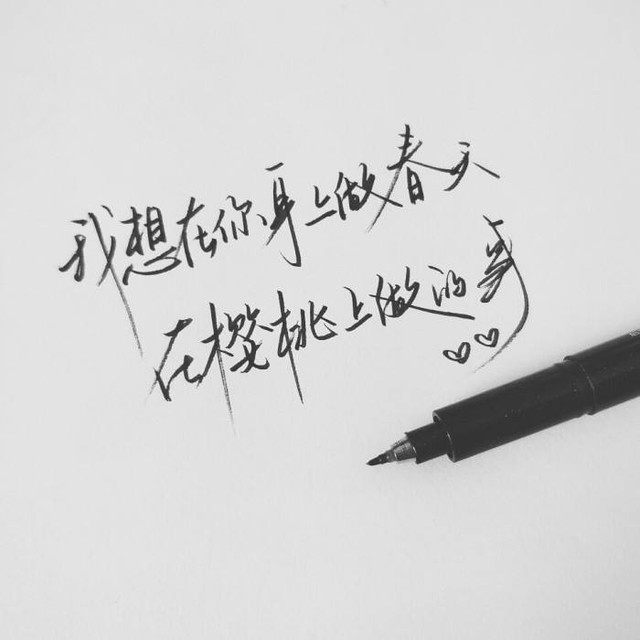 我想在你身上做春天
在樱桃上做的事